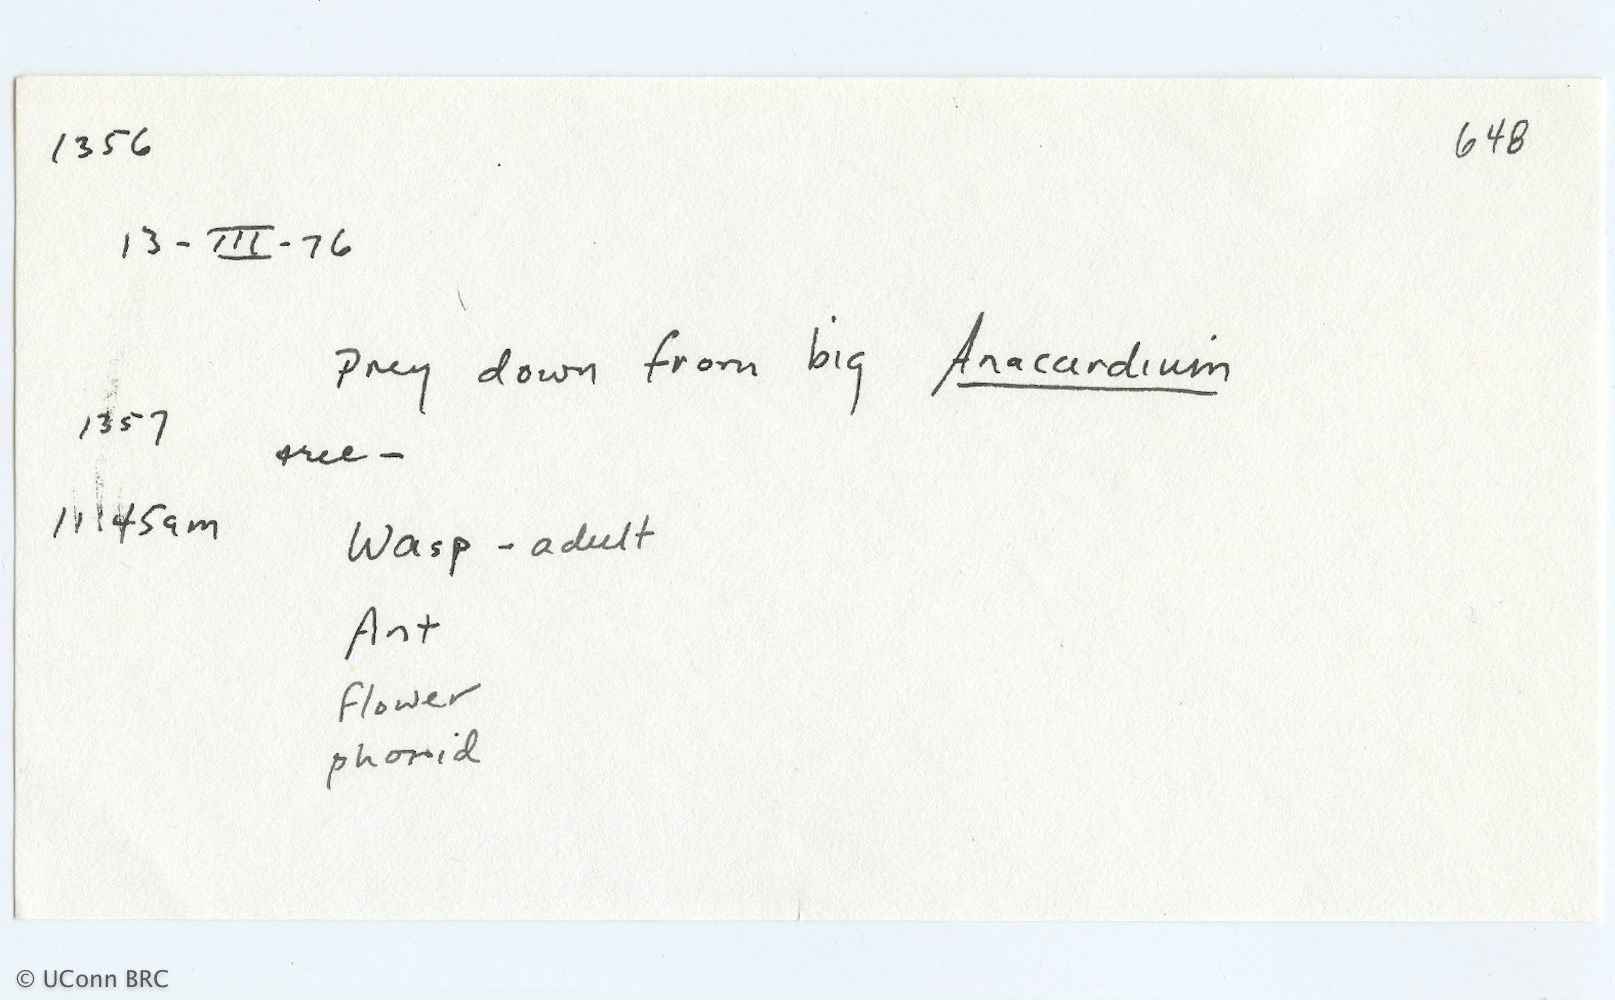 1356
648
13-III-76
Prey down from big Anacardium
1357
tree -
11:45am
Wasp - adult
Ant
flower
phorid
© UConn BRC